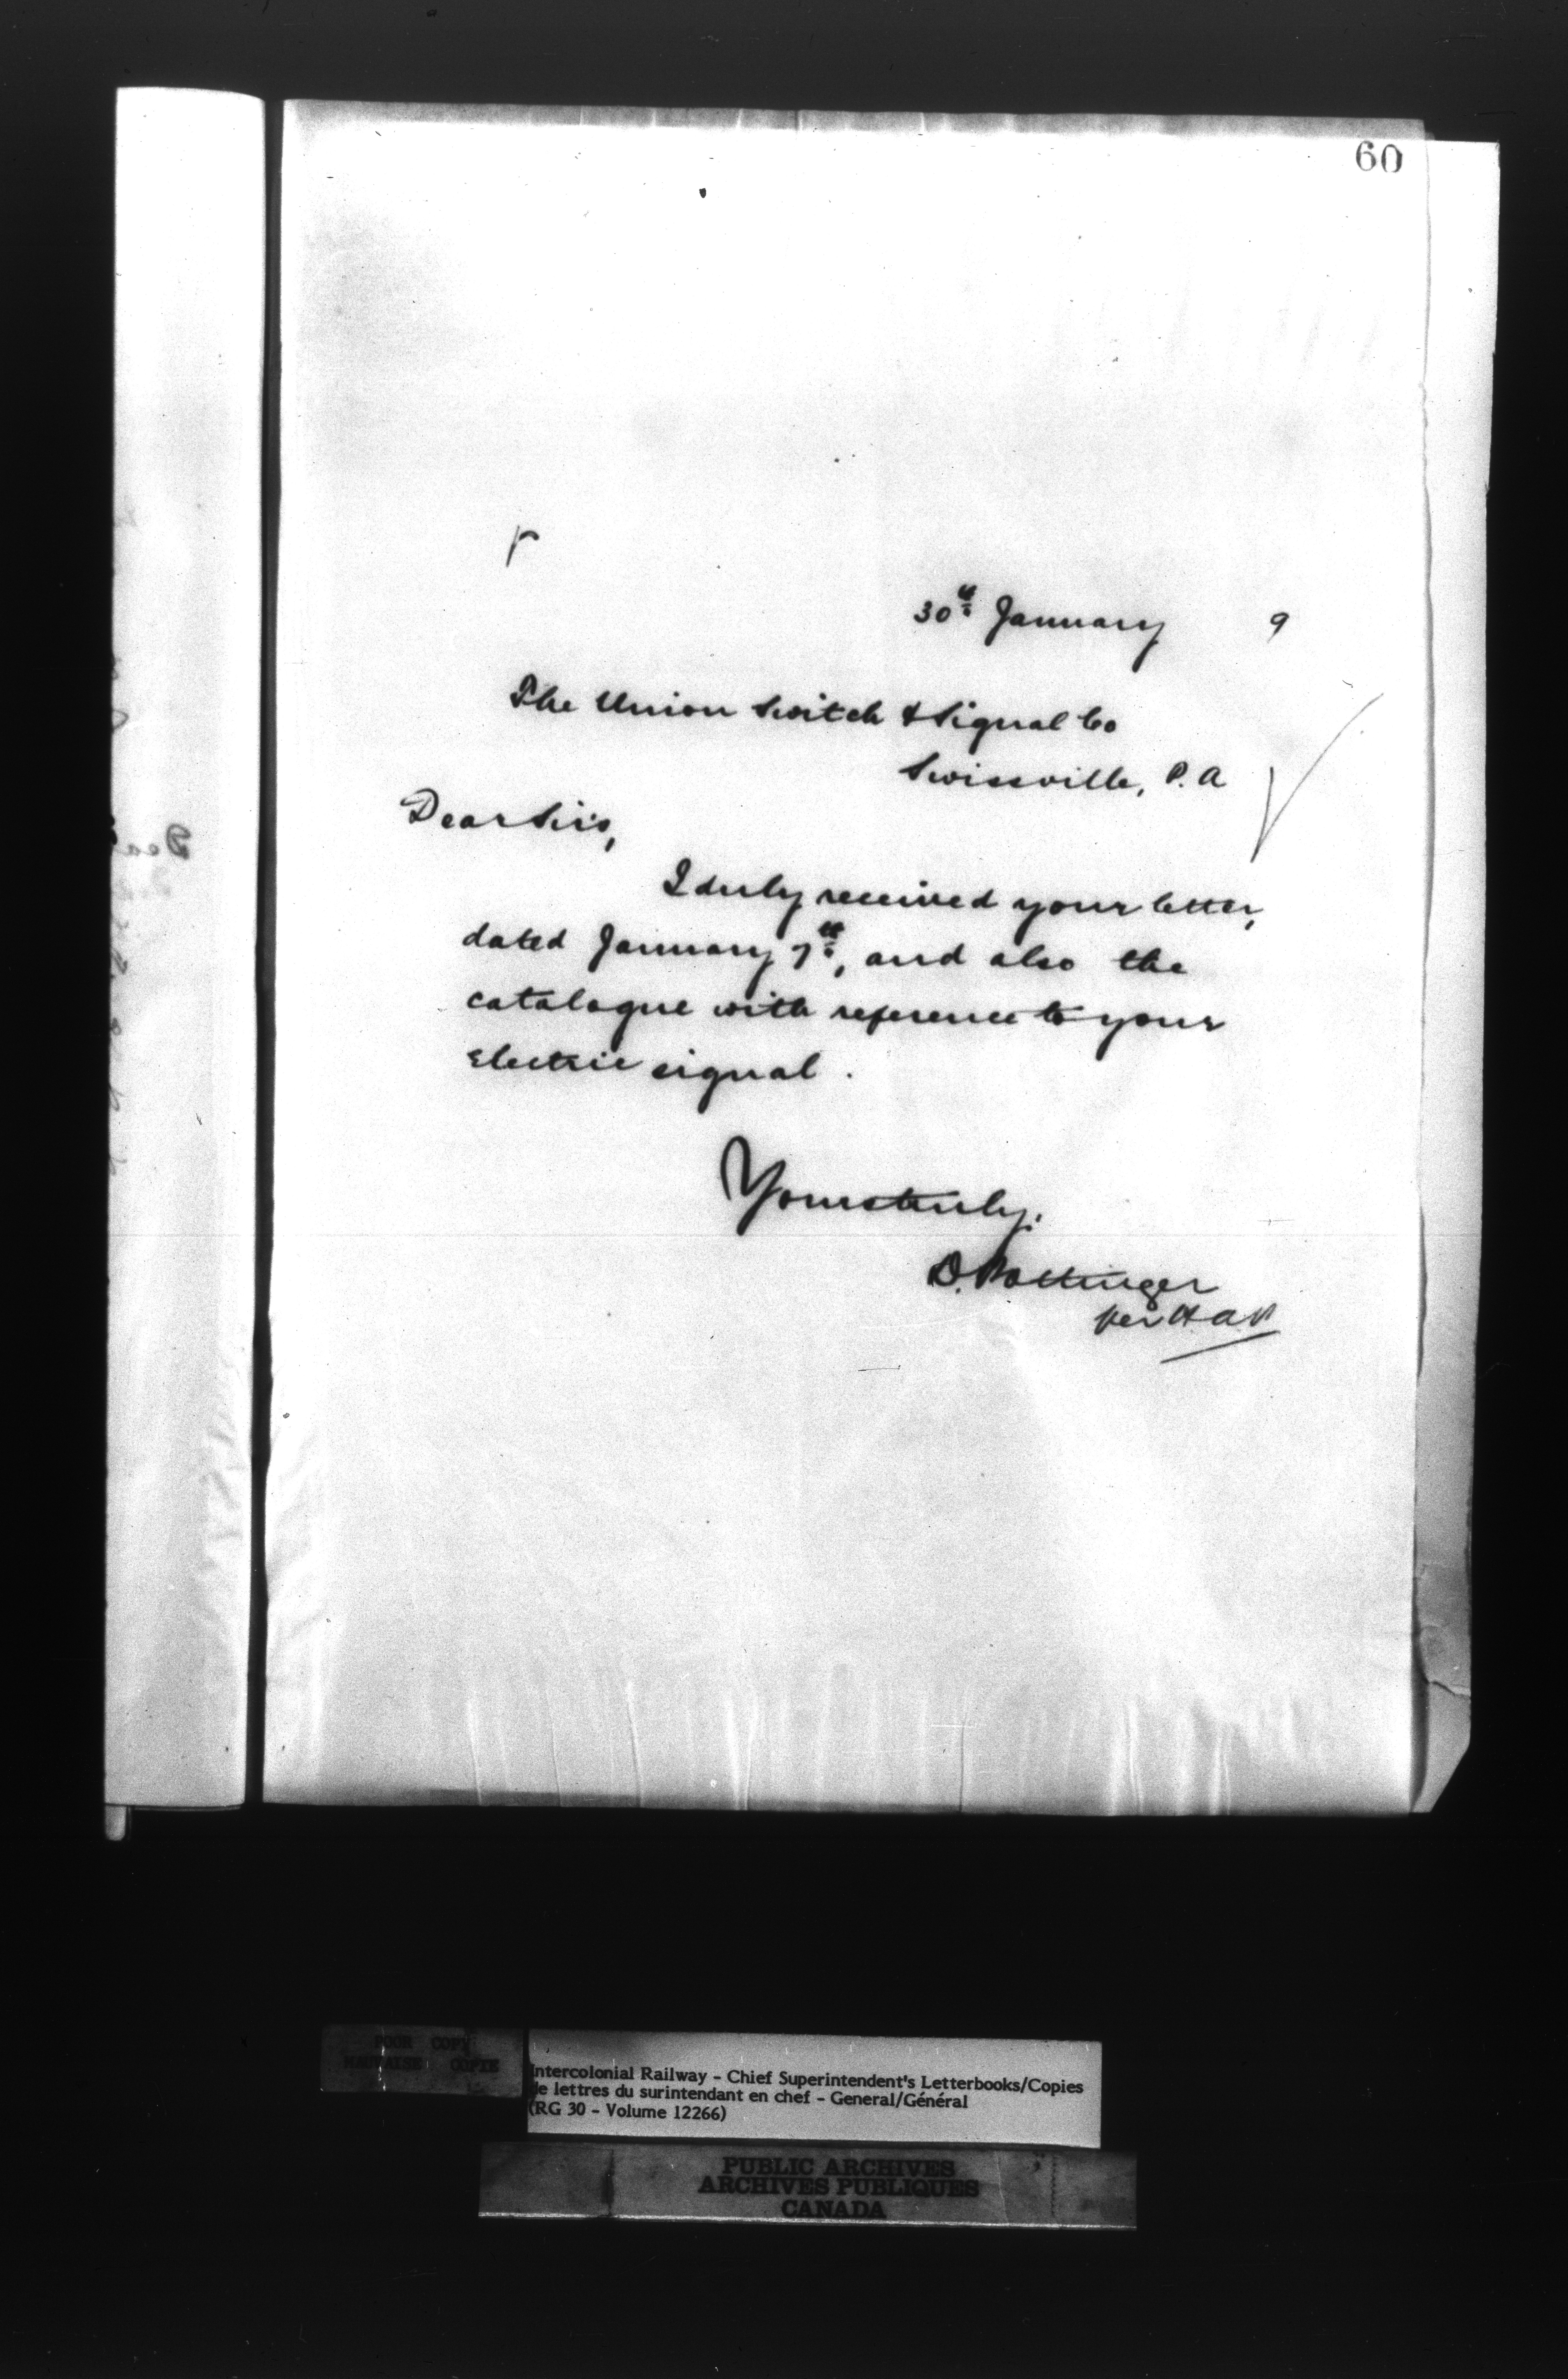 60
30th January 9
The Union Switch & Signal Co
Swissville, P.A
Dear Sirs,
I duly received your letter,
dated January 7th, and also the
catalogue with reference to your
Electric signal.
Yours truly.
D. Pottinger
per H A P
POOR COPY
MAUVAISE COPIE
Intercolonial Railway - Chief Superintendent's Letterbooks/Copies
de lettres du surintendant en chef - General/Général
(RG 30 - Volume 12266)
PUBLIC ARCHIVES
ARCHIVES PUBLIQUES
CANADA